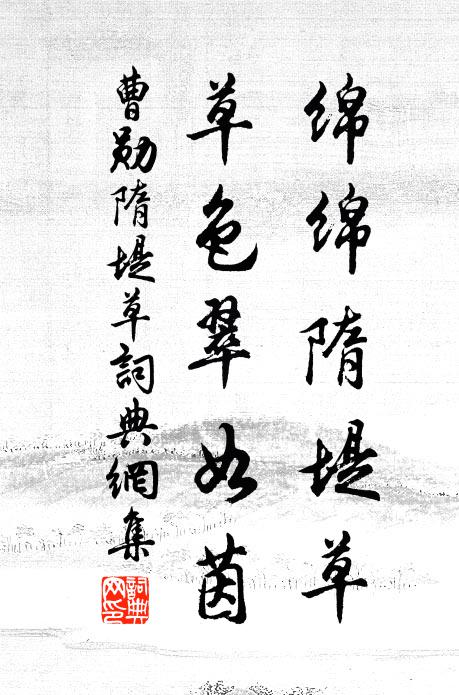 绵绵隋堤草
草色翠如茵
曹勋隋堤草詞典網集
詞典网印